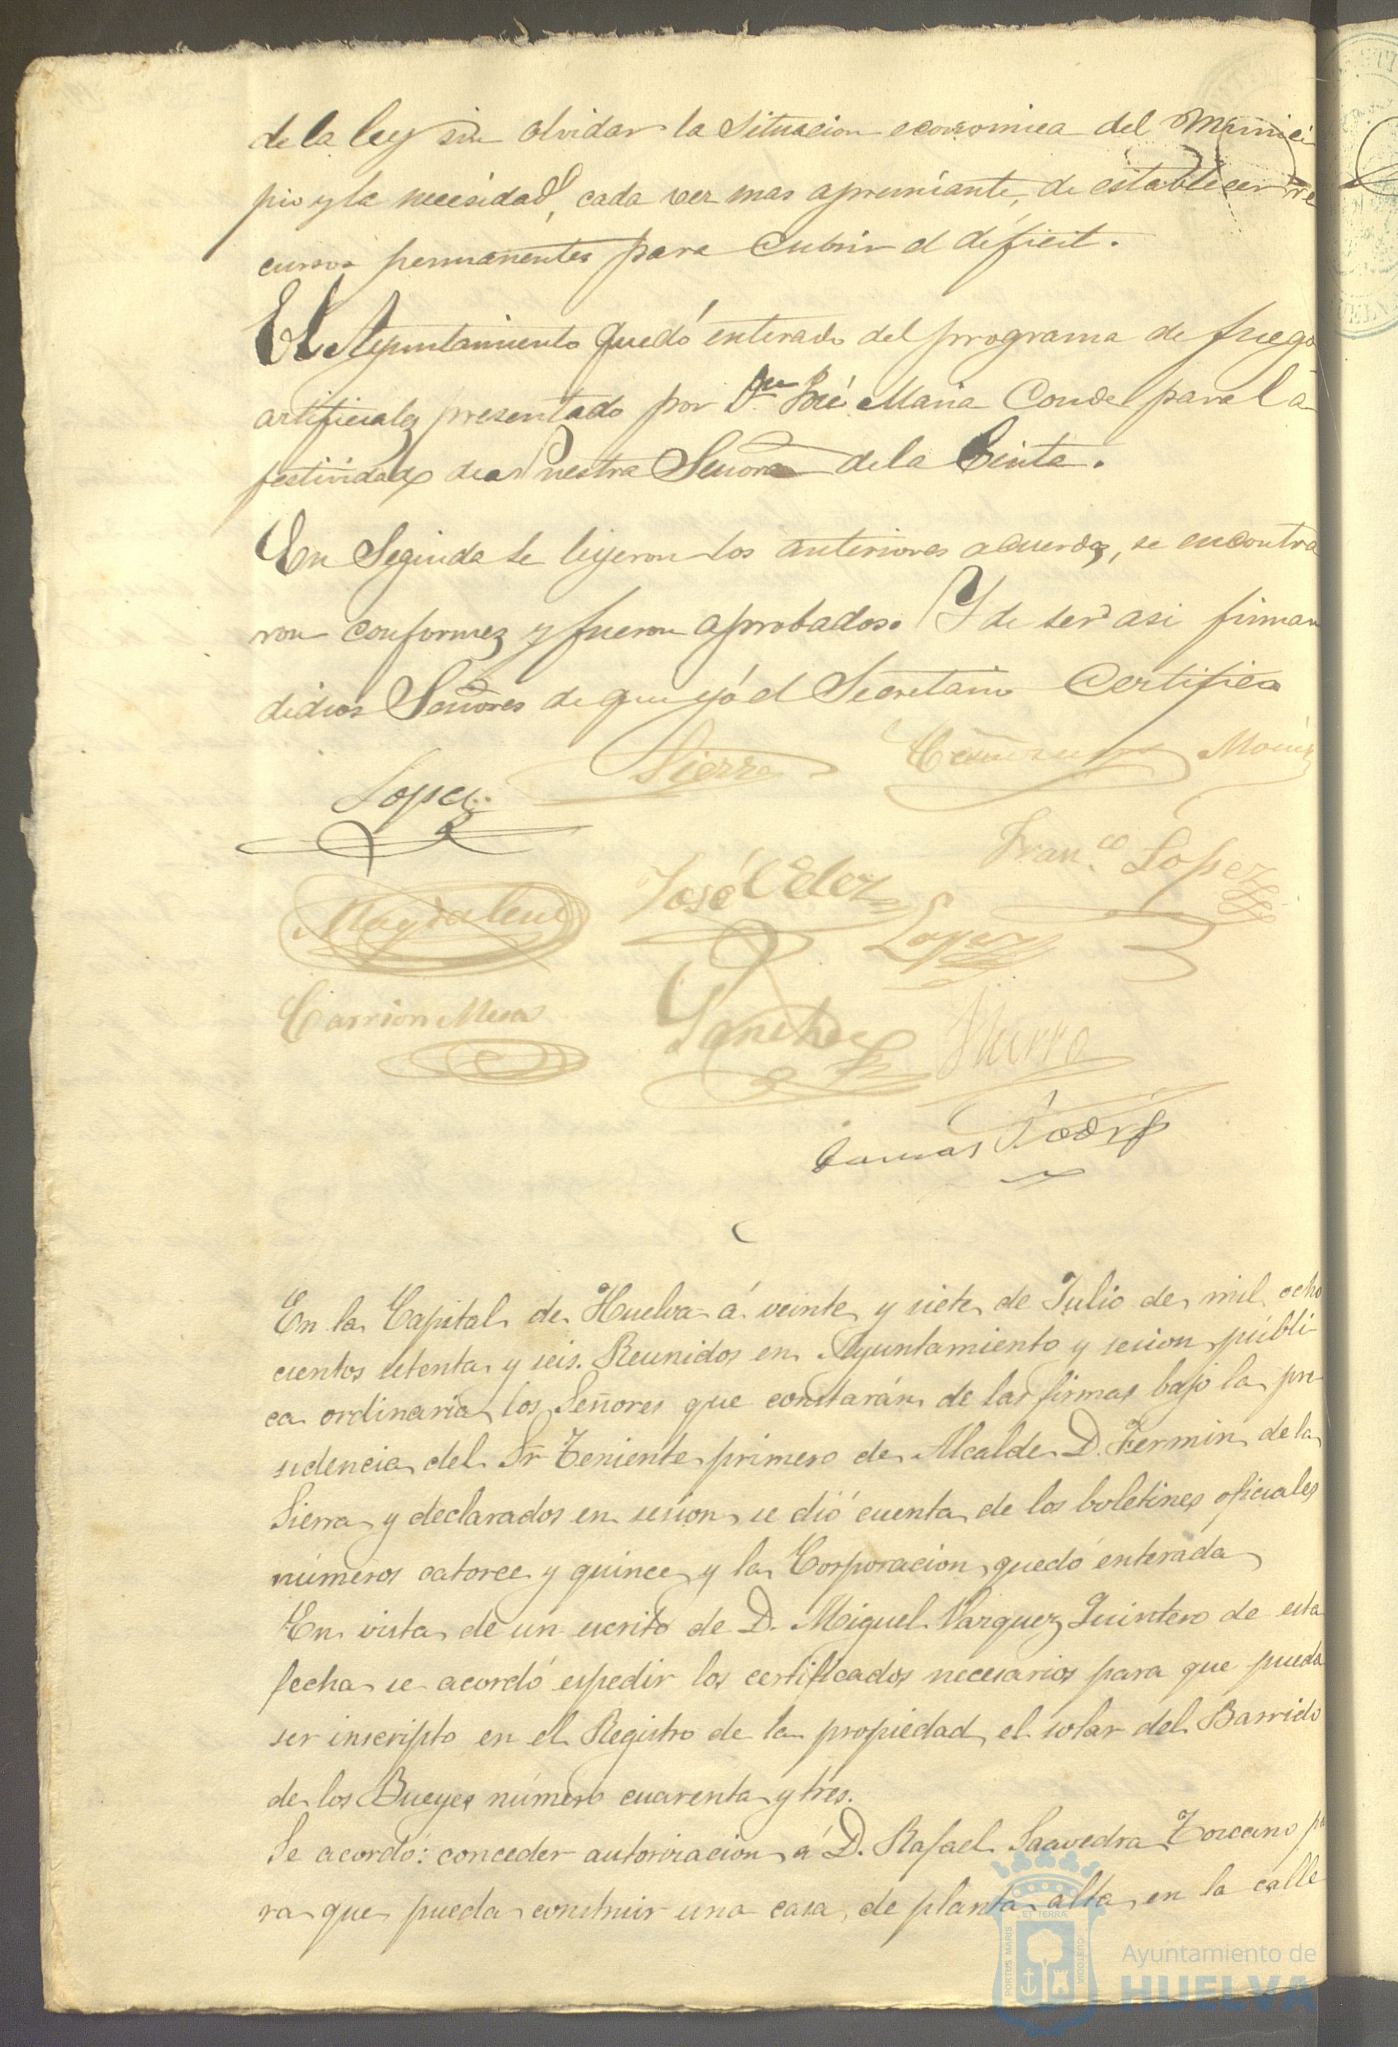 de la ley sin olvidar la situacion economica del Munici
pio y la necesidad, cada vez mas apremiante, de establecer re
cursos permanentes para cubrir el déficit.
El Ayuntamiento quedó enterado del programa de fuego
artificiales presentado por Dn José Maria Conde para la
festividad de Nuestra Señora de la Cinta.
En Seguida se leyeron los anteriores acuerdos, se encontra
ron conformes y fueron aprobados. Y de ser asi firman
dichos Señores de que yó el Secretario Certifico
Sierra
Lopez
Fran.co Lopez
José
Magdalena
Lopez
Carrion Mesa
Sanchez
Tomas Rodrz
En la Capital de Huelva á veinte y siete de Julio de mil ocho
cientos setenta y seis. Reunidos en Ayuntamiento y sesion públi-
ca ordinaria los Señores que constarán de las firmas bajo la pre
sidencia del Sr Teniente primero de Alcalde D. Fermin de la
Sierra y declarados en sesion se dió cuenta de los boletines oficiales
números catorce y quince y la Corporacion quedó enterada
En vista de un escrito de D. Miguel Vazquez Quintero de esta
fecha se acordó espedir los certificados necesarios para que pueda
ser inscripto en el Registro de la propiedad el solar del Barrido
de los Bueyes número cuarenta y tres.
Se acordó: conceder autorizacion á D. Rafael Saavedra Toscano pa
ra que pueda construir una casa de planta alta en la calle
PORTUS MARIS
ET TERRÆ
CUSTODIA
Ayuntamiento de
HUELVA